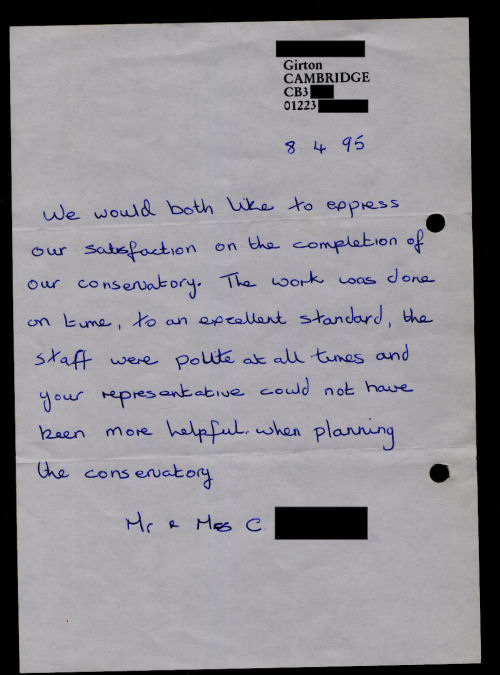 Girton
CAMBRIDGE
CB3
01223
8 4 95
We would both like to express
our satisfaction on the completion of
our conservatory. The work was done
on time, to an excellent standard, the
staff were polite at all times and
your representative could not have
been more helpful. when planning
the conservatory
Mr & Mrs C